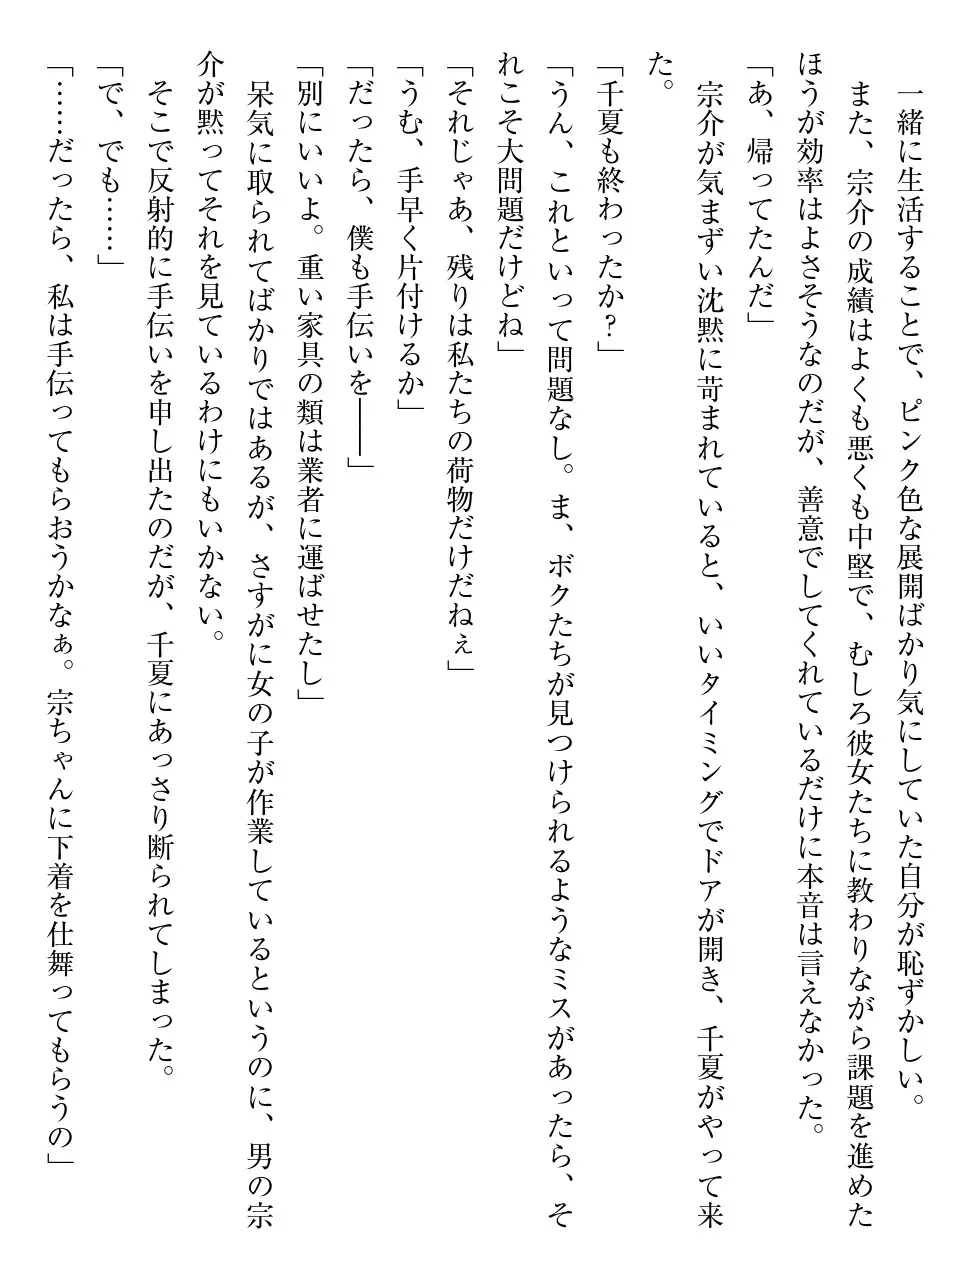 一緒に生活することで、ピンク色な展開ばかり気にしていた自分が恥ずかしい。
また、宗介の成績はよくも悪くも中堅で、むしろ彼女たちに教わりながら課題を進めた
ほうが効率はよさそうなのだが、善意でしてくれているだけに本音は言えなかった。
「あ、帰ってたんだ」
宗介が気まずい沈黙に苛まれていると、いいタイミングでドアが開き、千夏がやって来
た。
「千夏も終わったか?」
「うん、これといって問題なし。ま、ボクたちが見つけられるようなミスがあったら、そ
れこそ大問題だけどね」
「それじゃあ、残りは私たちの荷物だけだねぇ」
「うむ、手早く片付けるか」
「だったら、僕も手伝いを――」
「別にいいよ。重い家具の類は業者に運ばせたし」
呆気に取られてばかりではあるが、さすがに女の子が作業しているというのに、男の宗
介が黙ってそれを見ているわけにもいかない。
そこで反射的に手伝いを申し出たのだが、千夏にあっさり断られてしまった。
「で、でも……」
「……だったら、私は手伝ってもらおうかなぁ。宗ちゃんに下着を仕舞ってもらうの」